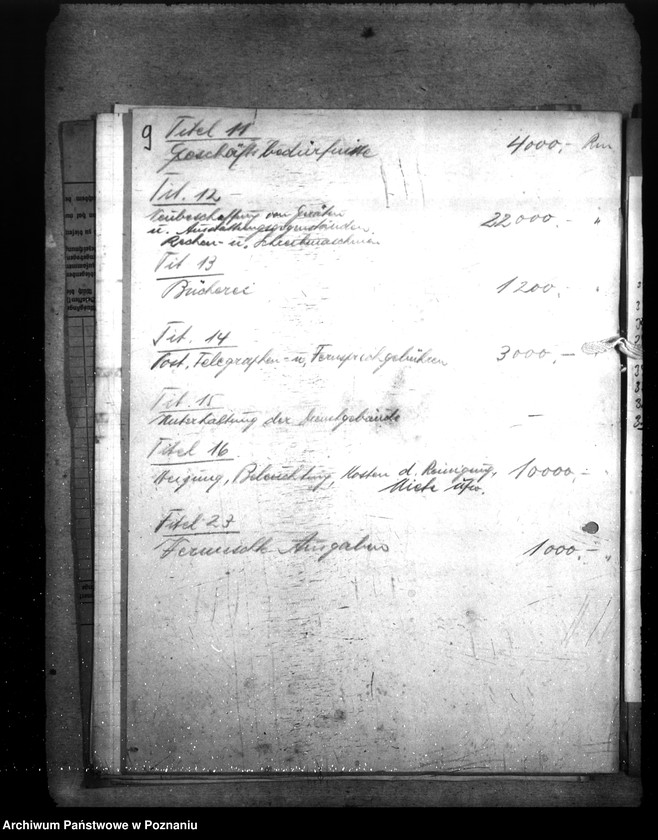 9 Titel 11
Geschäftsbedürfnisse 4000,- Rm
Tit. 12
Neubeschaffung von Geräten
u. Ausstattungsgegenständen,
Rechen- u. Schreibmaschinen 22000.- "
Tit 13
Bücherei 1200.- "
Tit. 14
Post, Telegraphen- u. Fernsprechgebühren 3000,- "
Tit. 15
Unterhaltung der Dienstgebäude -
Titel 16
Heizung, Beleuchtung, Kosten d. Reinigung, 10000,- "
Miete usw.
Titel 27
Vermischte Ausgaben 1000,- "
Archiwum Państwowe w Poznaniu